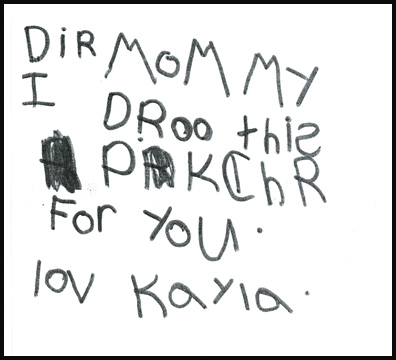 DiR MOMMY
I DRoo this
PiKChR
For YOU.
lov Kayla.